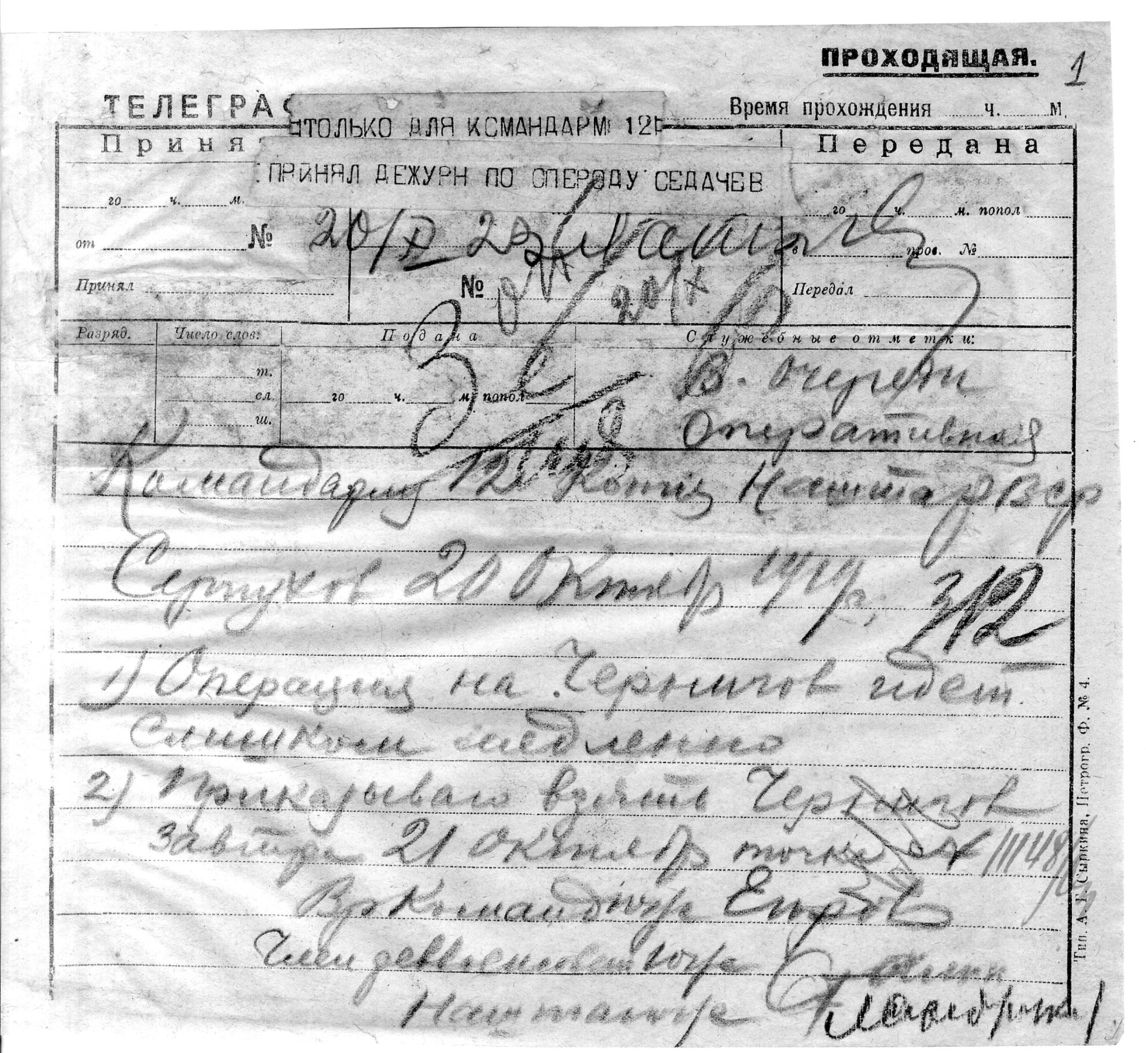 ПРОХОДЯЩАЯ. 1
ТЕЛЕГРА
Время прохождения ч. м.
ТОЛЬКО ДЛЯ КОМАНДАРМ 12
Приня Передана
ПРИНЯЛ ДЕЖУРН ПО ОПЕРОДУ СЕДАЧЕВ
го ч. м. го ч. м. попол
от № 20/X 23 в пров. №
Принял № 20/X Передал
Разряд. Число слов: Подана Служебные отметки:
т.
сл. го ч. м. попол
ш.
В. очереди
Оперативная
Командарму 12 Копия Наштарвср
Серпухов 20 Октябр 1919 г.
312
1) Операция на Чернигов идет
слишком медленно
2) Приказываю взять Чернигов
завтра 21 октябр точка 11148
ВрКомандюж Егоров
Член реввоенсовета юж Сталин
Наштаюж
Тип. А. Г. Сыркина, Петрогр. Ф. № 4.